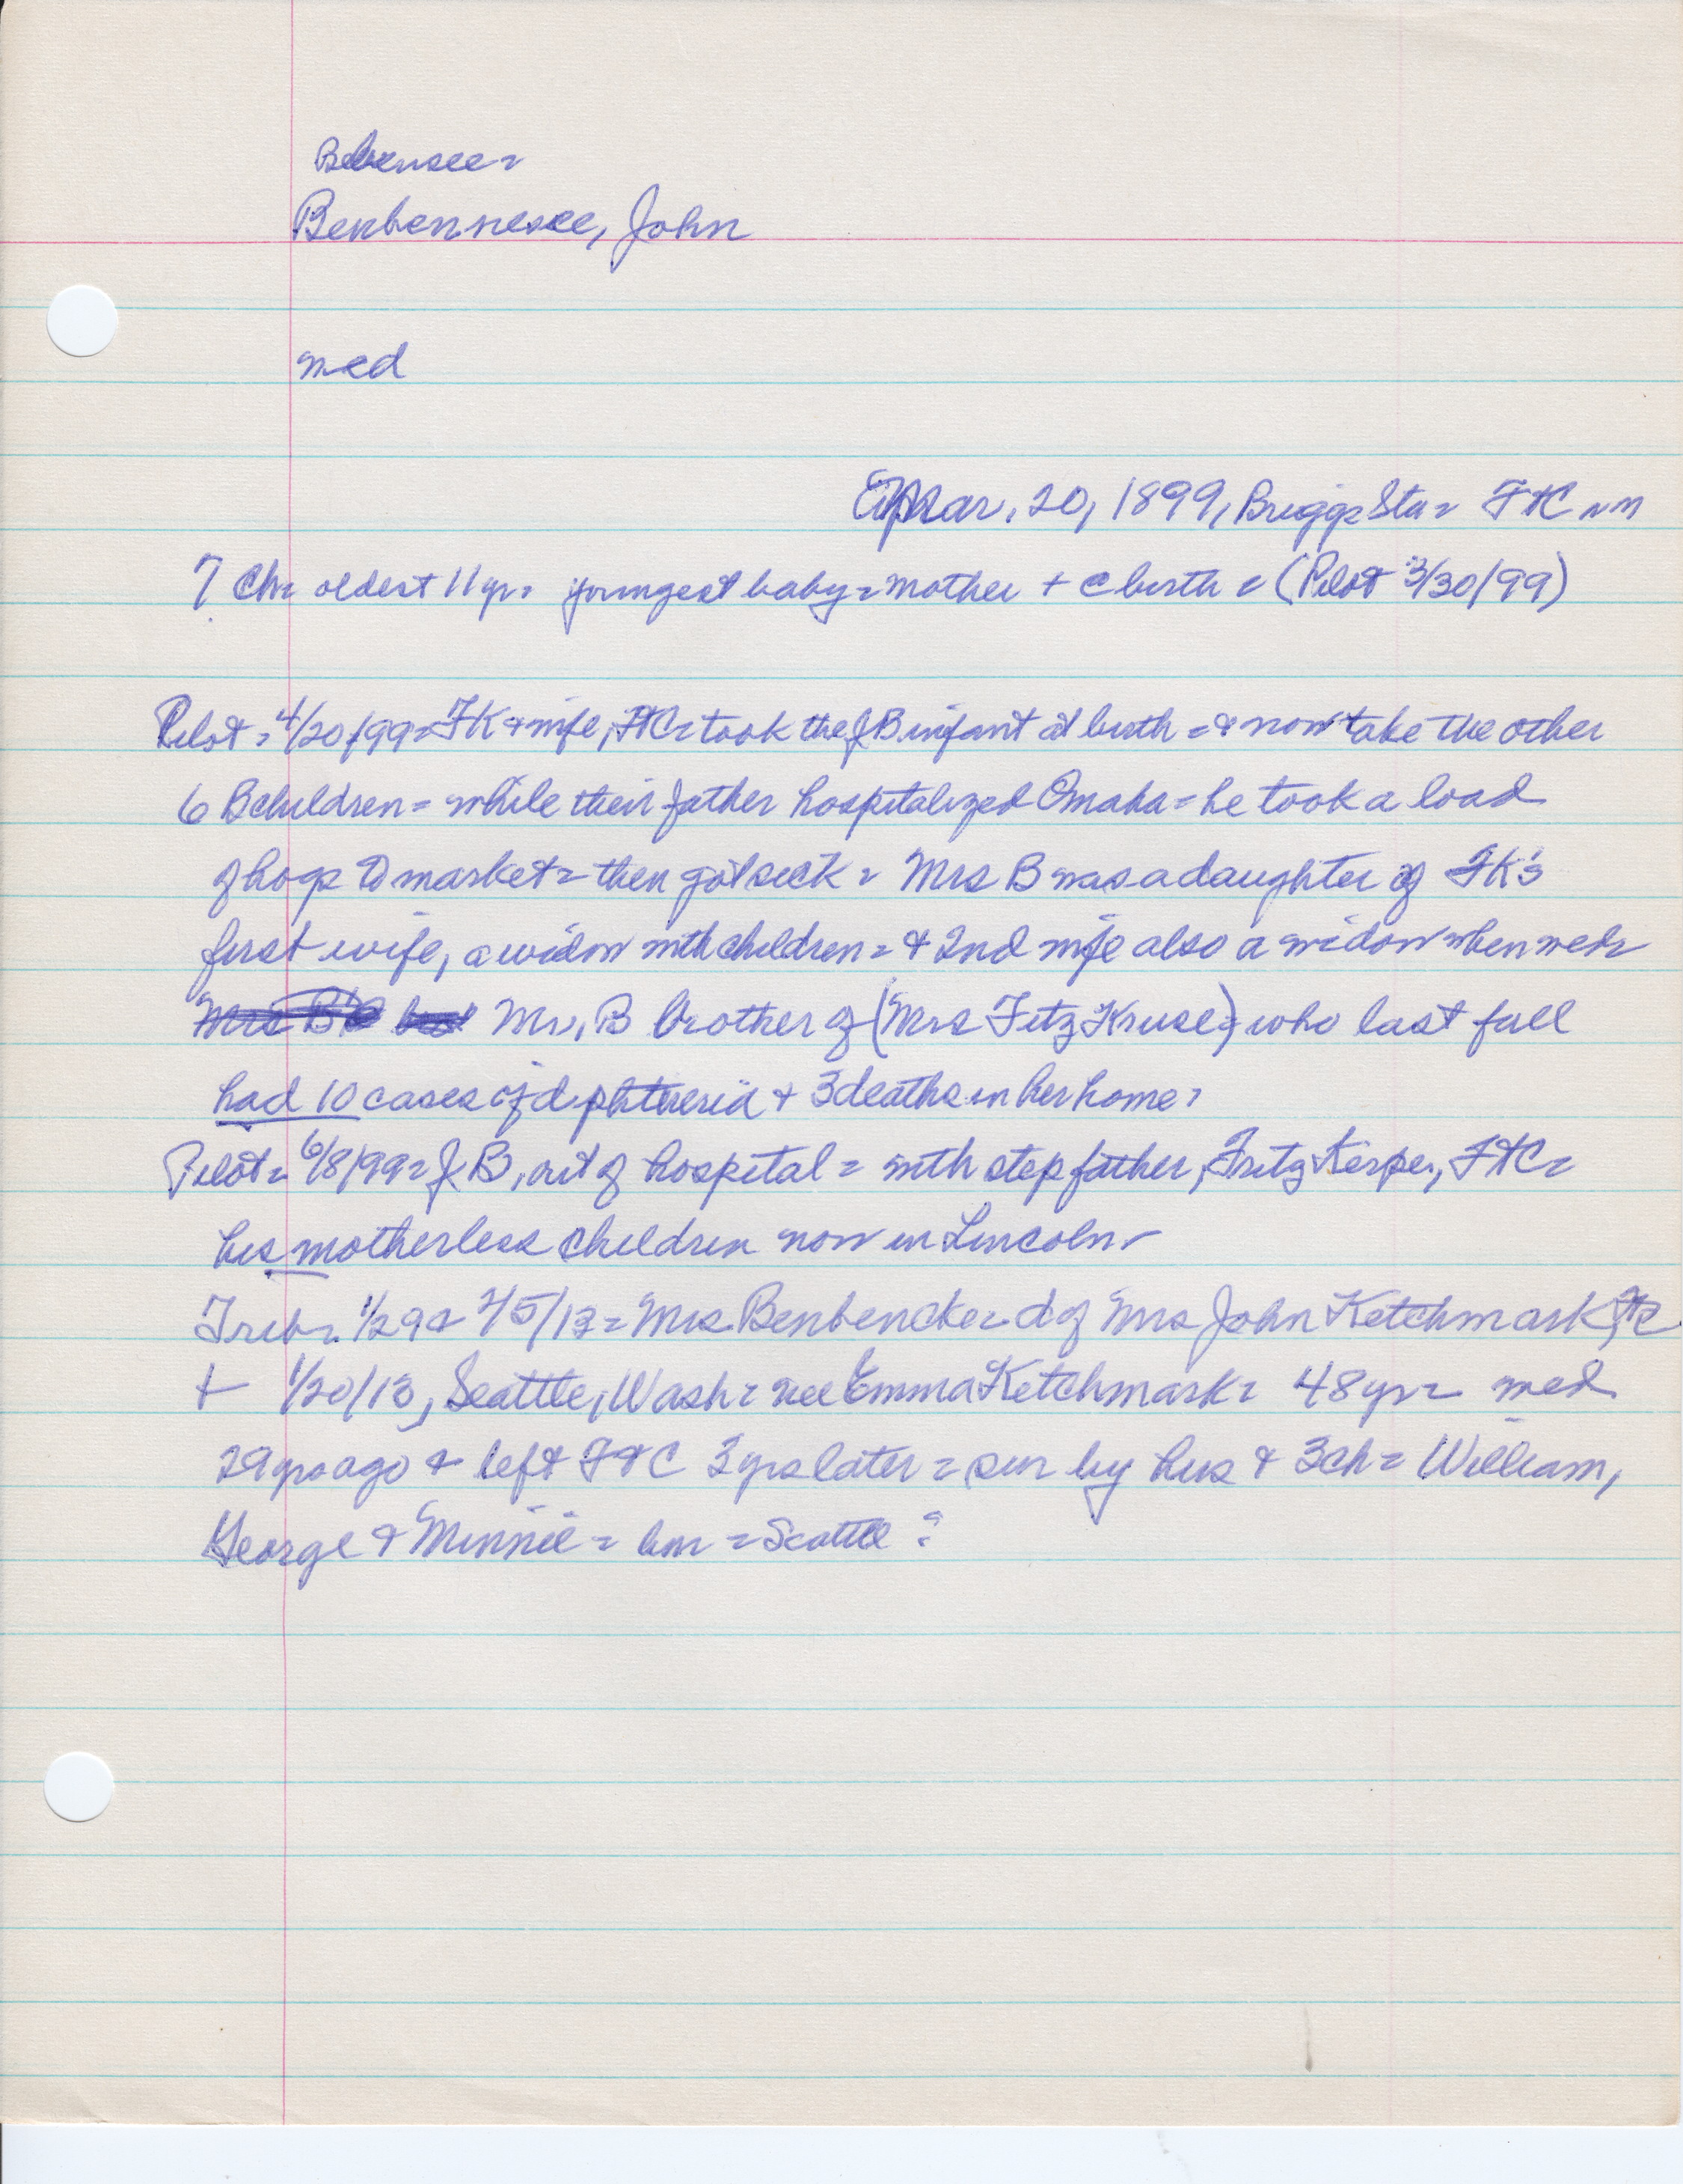 Bebensee =
Benbennesee, John
med
Mar, 20, 1899, Briggs Sta = FtC
7 Ch = oldest 11 yr = youngest baby = mother + @ birth = (Pilot 3/30/99)
Pilot = 4/20/99 = FK & wife, FtC = took the JB infant at birth = & now take the other
6 B children = while their father hospitalized Omaha = he took a load
of hogs to market = then got sick = Mrs B was a daughter of FK's
first wife, a widow with children = & 2nd wife also a widow when wed =
Mr, B brother of (Mrs Fitz Kruse) = who last fall
had 10 cases of diphtheria & 3 deaths in her home =
Pilot = 6/8/99 = J B, out of hospital = with step father, Fritz Kerpe, FtC =
his motherless children now in Lincoln
Trib = 1/29 & 2/5/13 = Mrs Benbencke = d of Mrs John Ketchmark
+ 1/20/13, Seattle, Wash = nee Emma Ketchmark = 48 yr = med
29 yrs ago & left FtC 3 yrs later = sur by hus & 3 ch = William,
George & Minnie = bur = Seattle ?